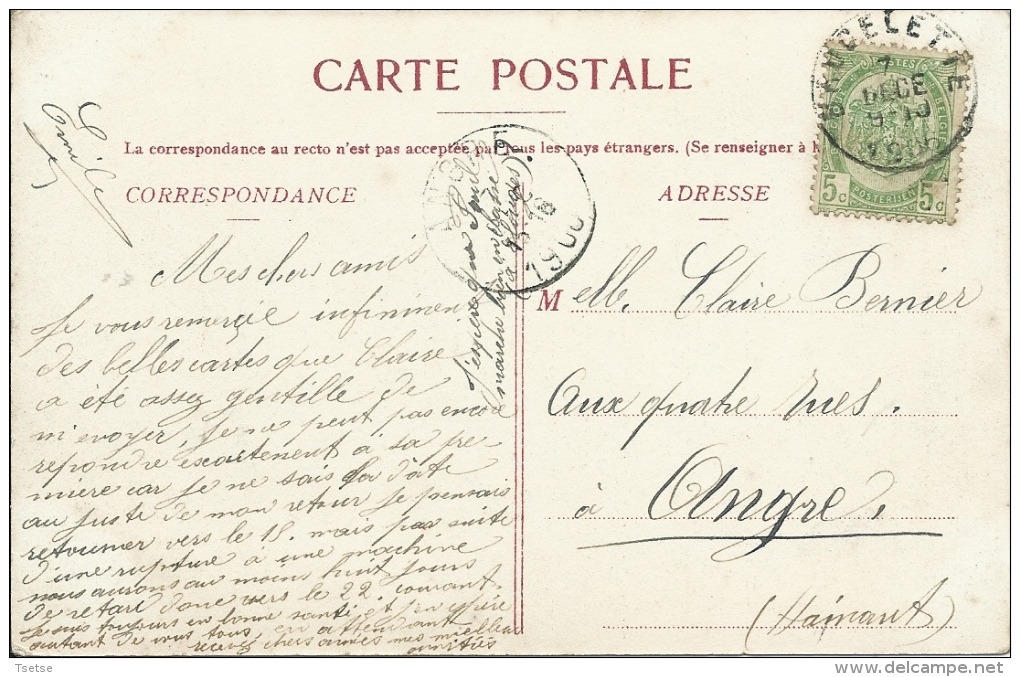 CARTE POSTALE
La correspondance au recto n'est pas acceptée par tous les pays étrangers. (Se renseigner à
CORRESPONDANCE
ADRESSE
Mes chers amis
Je vous remerçie infiniment
des belles cartes que Claire
a été assez gentille de
m'evoyer, Je ne peut pas encore
repondre exactement à sa pre-
mière car je ne sais la date
au juste de mon retour Je pensais
retourner vers le 15. mais par suite
d'une rupture à une machine
nous aurons au moins huit jours
de retard donc vers le 22 courant.
Je suis toujours en bonne santé et j'en espère
autant de vous tous, en attendant
recevez chers amies mes meilleures
amitiés
J'espère que Paul
marche bien en classe
(à
Emile
Melle. Claire Bernier
Aux quatre rues.
à Angre.
(Hainaut)
DECE
1900
5c
5c
POSTERIJEN
Tsetse
delcampe.net